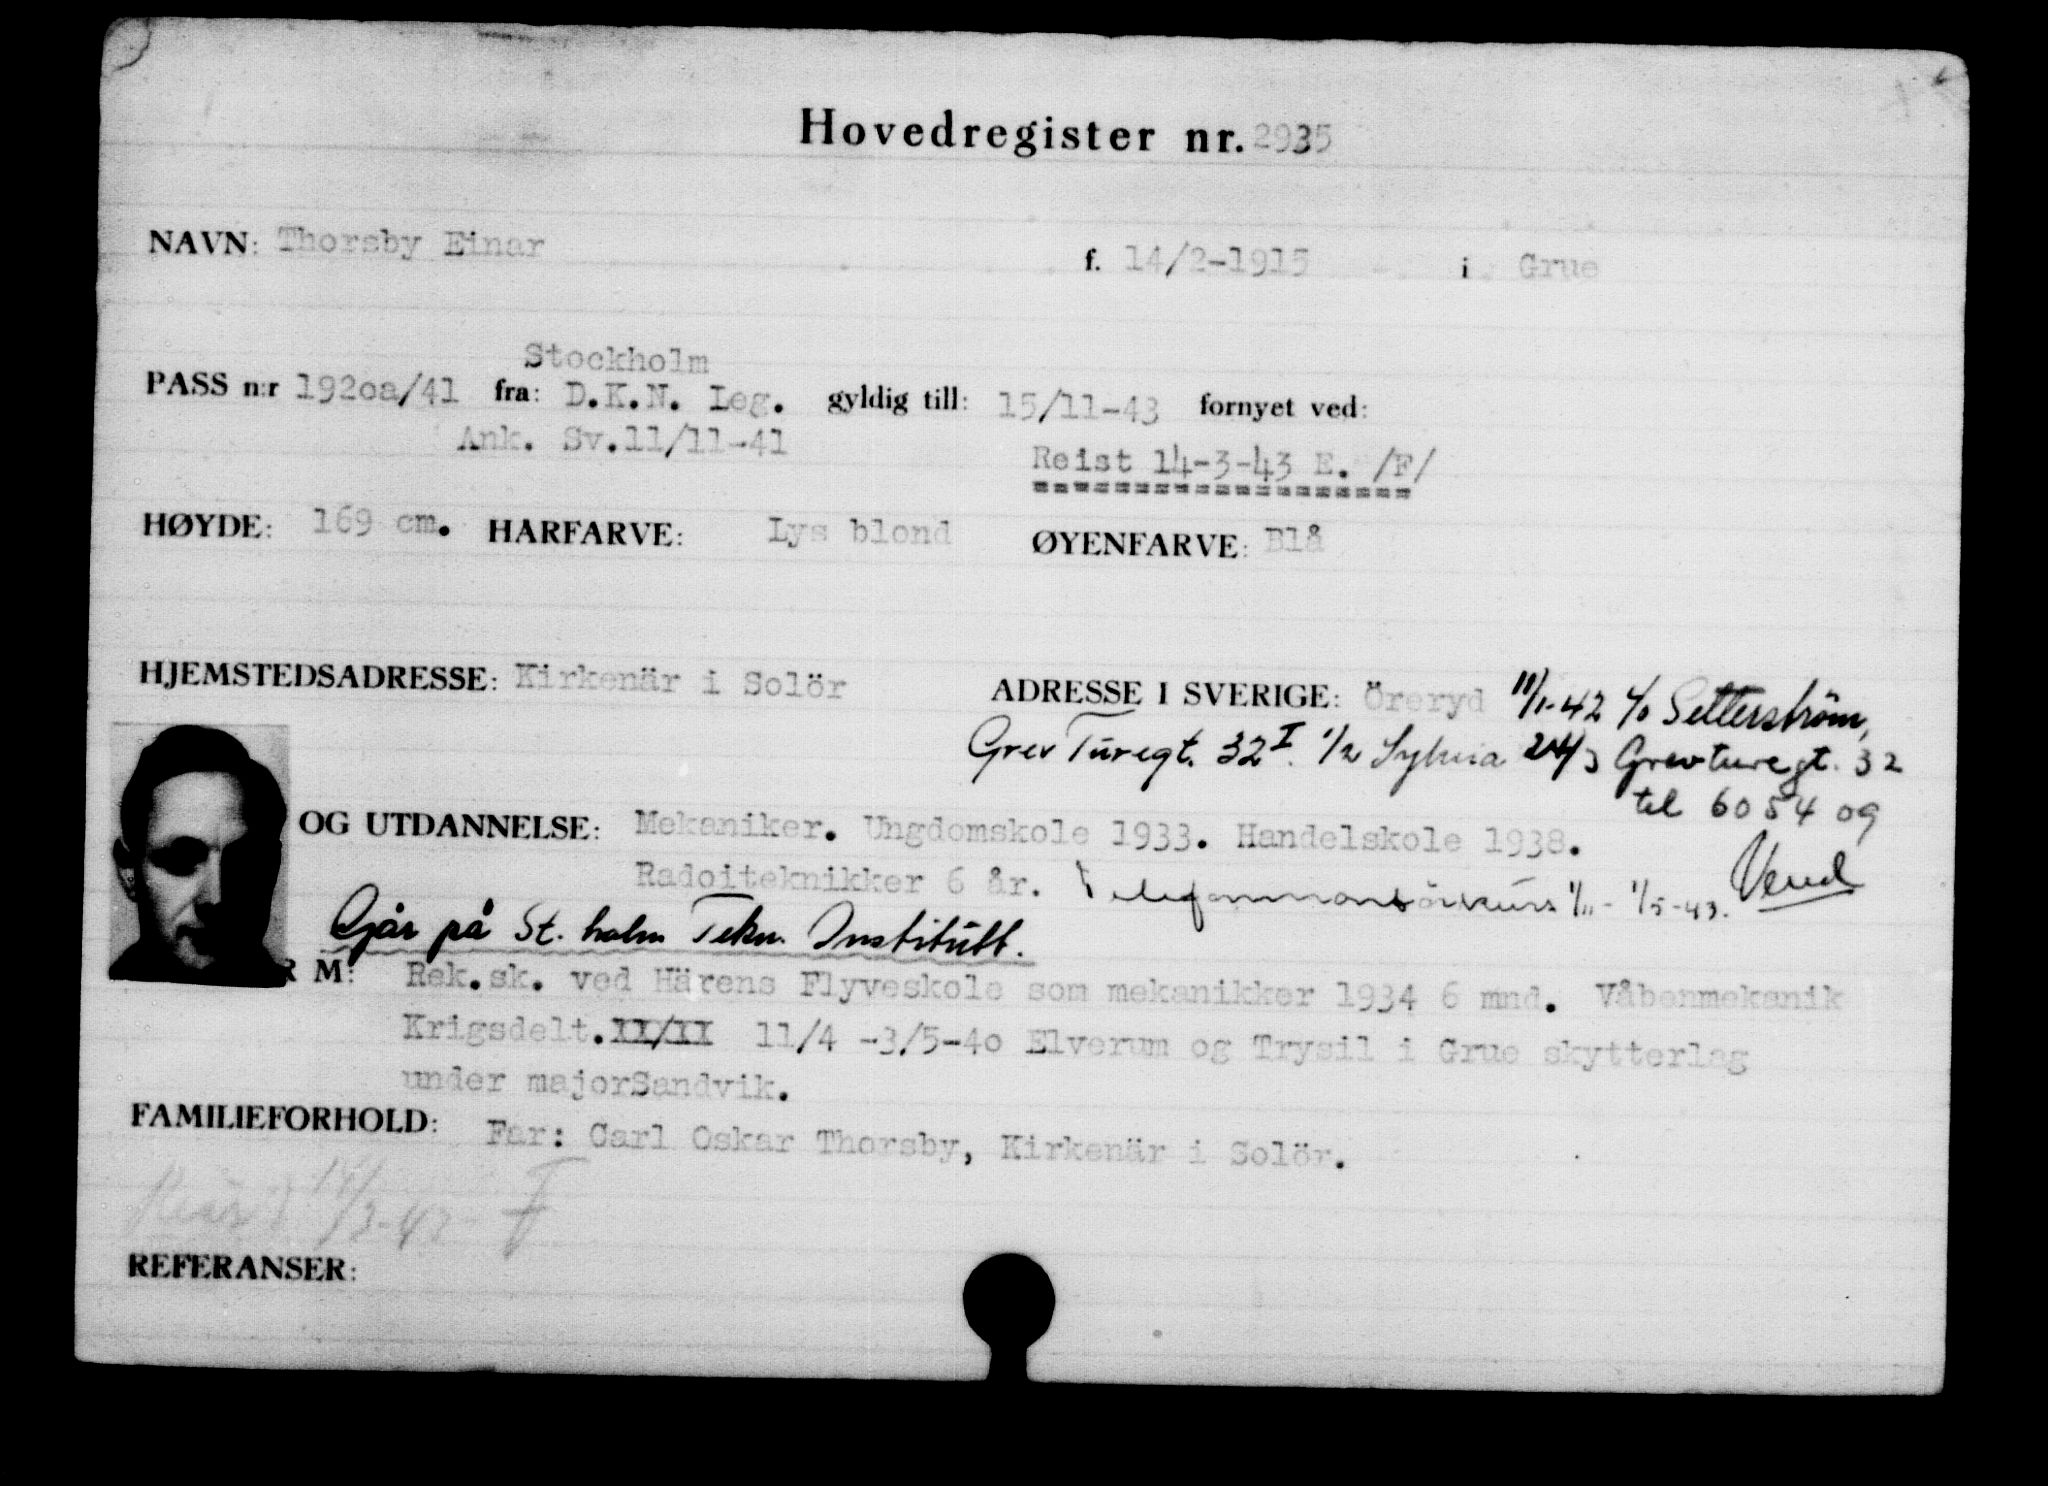 Hovedregister nr. 2935
NAVN: Thorsby Einar f. 14/2-1915 i Grue
Stockholm
PASS n:r 192oa/41 fra: D.K.N. Leg. gyldig till: 15/11-43 fornyet ved:
Ank. Sv.11/11-41
Reist 14-3-43 E. /F/
HØYDE: 169 cm. HÅRFARVE: Lys blond ØYENFARVE: Blå
HJEMSTEDSADRESSE: Kirkenär i Solör ADRESSE I SVERIGE: Öreryd 11/1-42 c/o Setterström,
Grev Turegt. 32 I. 1/2 Sylvia 24/3 Grevturegt. 32
tel 60 54 09
OG UTDANNELSE: Mekaniker. Ungdomskole 1933. Handelskole 1938.
Radoiteknikker 6 år. 1/11 - 1/5-43. Vend
Går på St. holm Tekn. Institutt.
R M: Rek.sk. ved Härens Flyveskole som mekanikker 1934 6 mnd. Våbenmekanik
Krigsdelt. 11/4 -3/5-4o Elverum og Trysil i Grue skytterlag
under majorSandvik.
FAMILIEFORHOLD: Far: Carl Oskar Thorsby, Kirkenär i Solör.
14/3-43 F
REFERANSER: